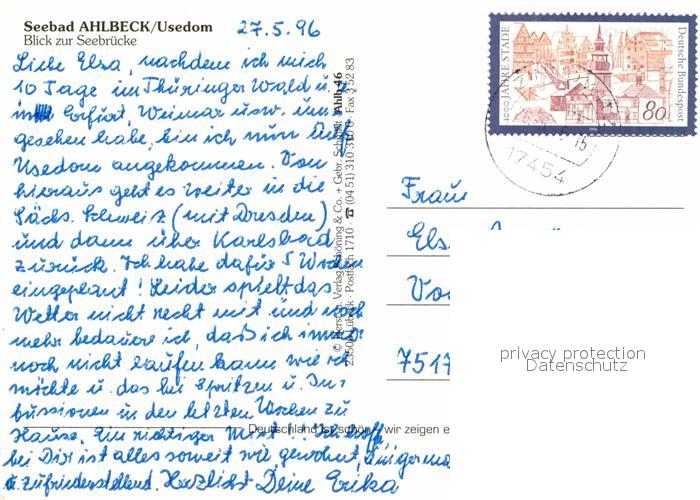 Seebad AHLBECK/Usedom
Blick zur Seebrücke
27.5.96
Liebe Elsa, nachdem ich mich
10 Tage im Thüringer Wald u.
in Erfurt, Weimar usw. um
gesehen habe, bin ich nun auf
Usedom angekommen. Von
hieraus geht es weiter in die
Sächs. Schweiz (mit Dresden)
und dann über Karlsbad
zurück. Ich habe dafür 5 Wochen
eingeplant! Leider spielt das
Wetter nicht recht mit und noch
mehr bedaure ich, daß ich immer
noch nicht laufen kann wie ich
möchte u. das bei Spritzen u. In-
fusionen in den letzten Wochen zu
Hause. Ein richtiger Mist!! Ich hoffe,
bei Dir ist alles soweit wie gewohnt, einigerma
zufriedenstellend. Herzlichst Deine Erika
Deutschland ist schön - wir zeigen e
Verlag Schöning & Co. + Gebr. Schmidt Ahlb 46
23508 Lübeck · Postfach 1710 · ☎ (04 51) 310 31 0 · Fax 3 52 83
1000 JAHRE STADE
Deutsche Bundespost
80
15
17454
Frau
Els
Vo
7517
privacy protection
Datenschutz